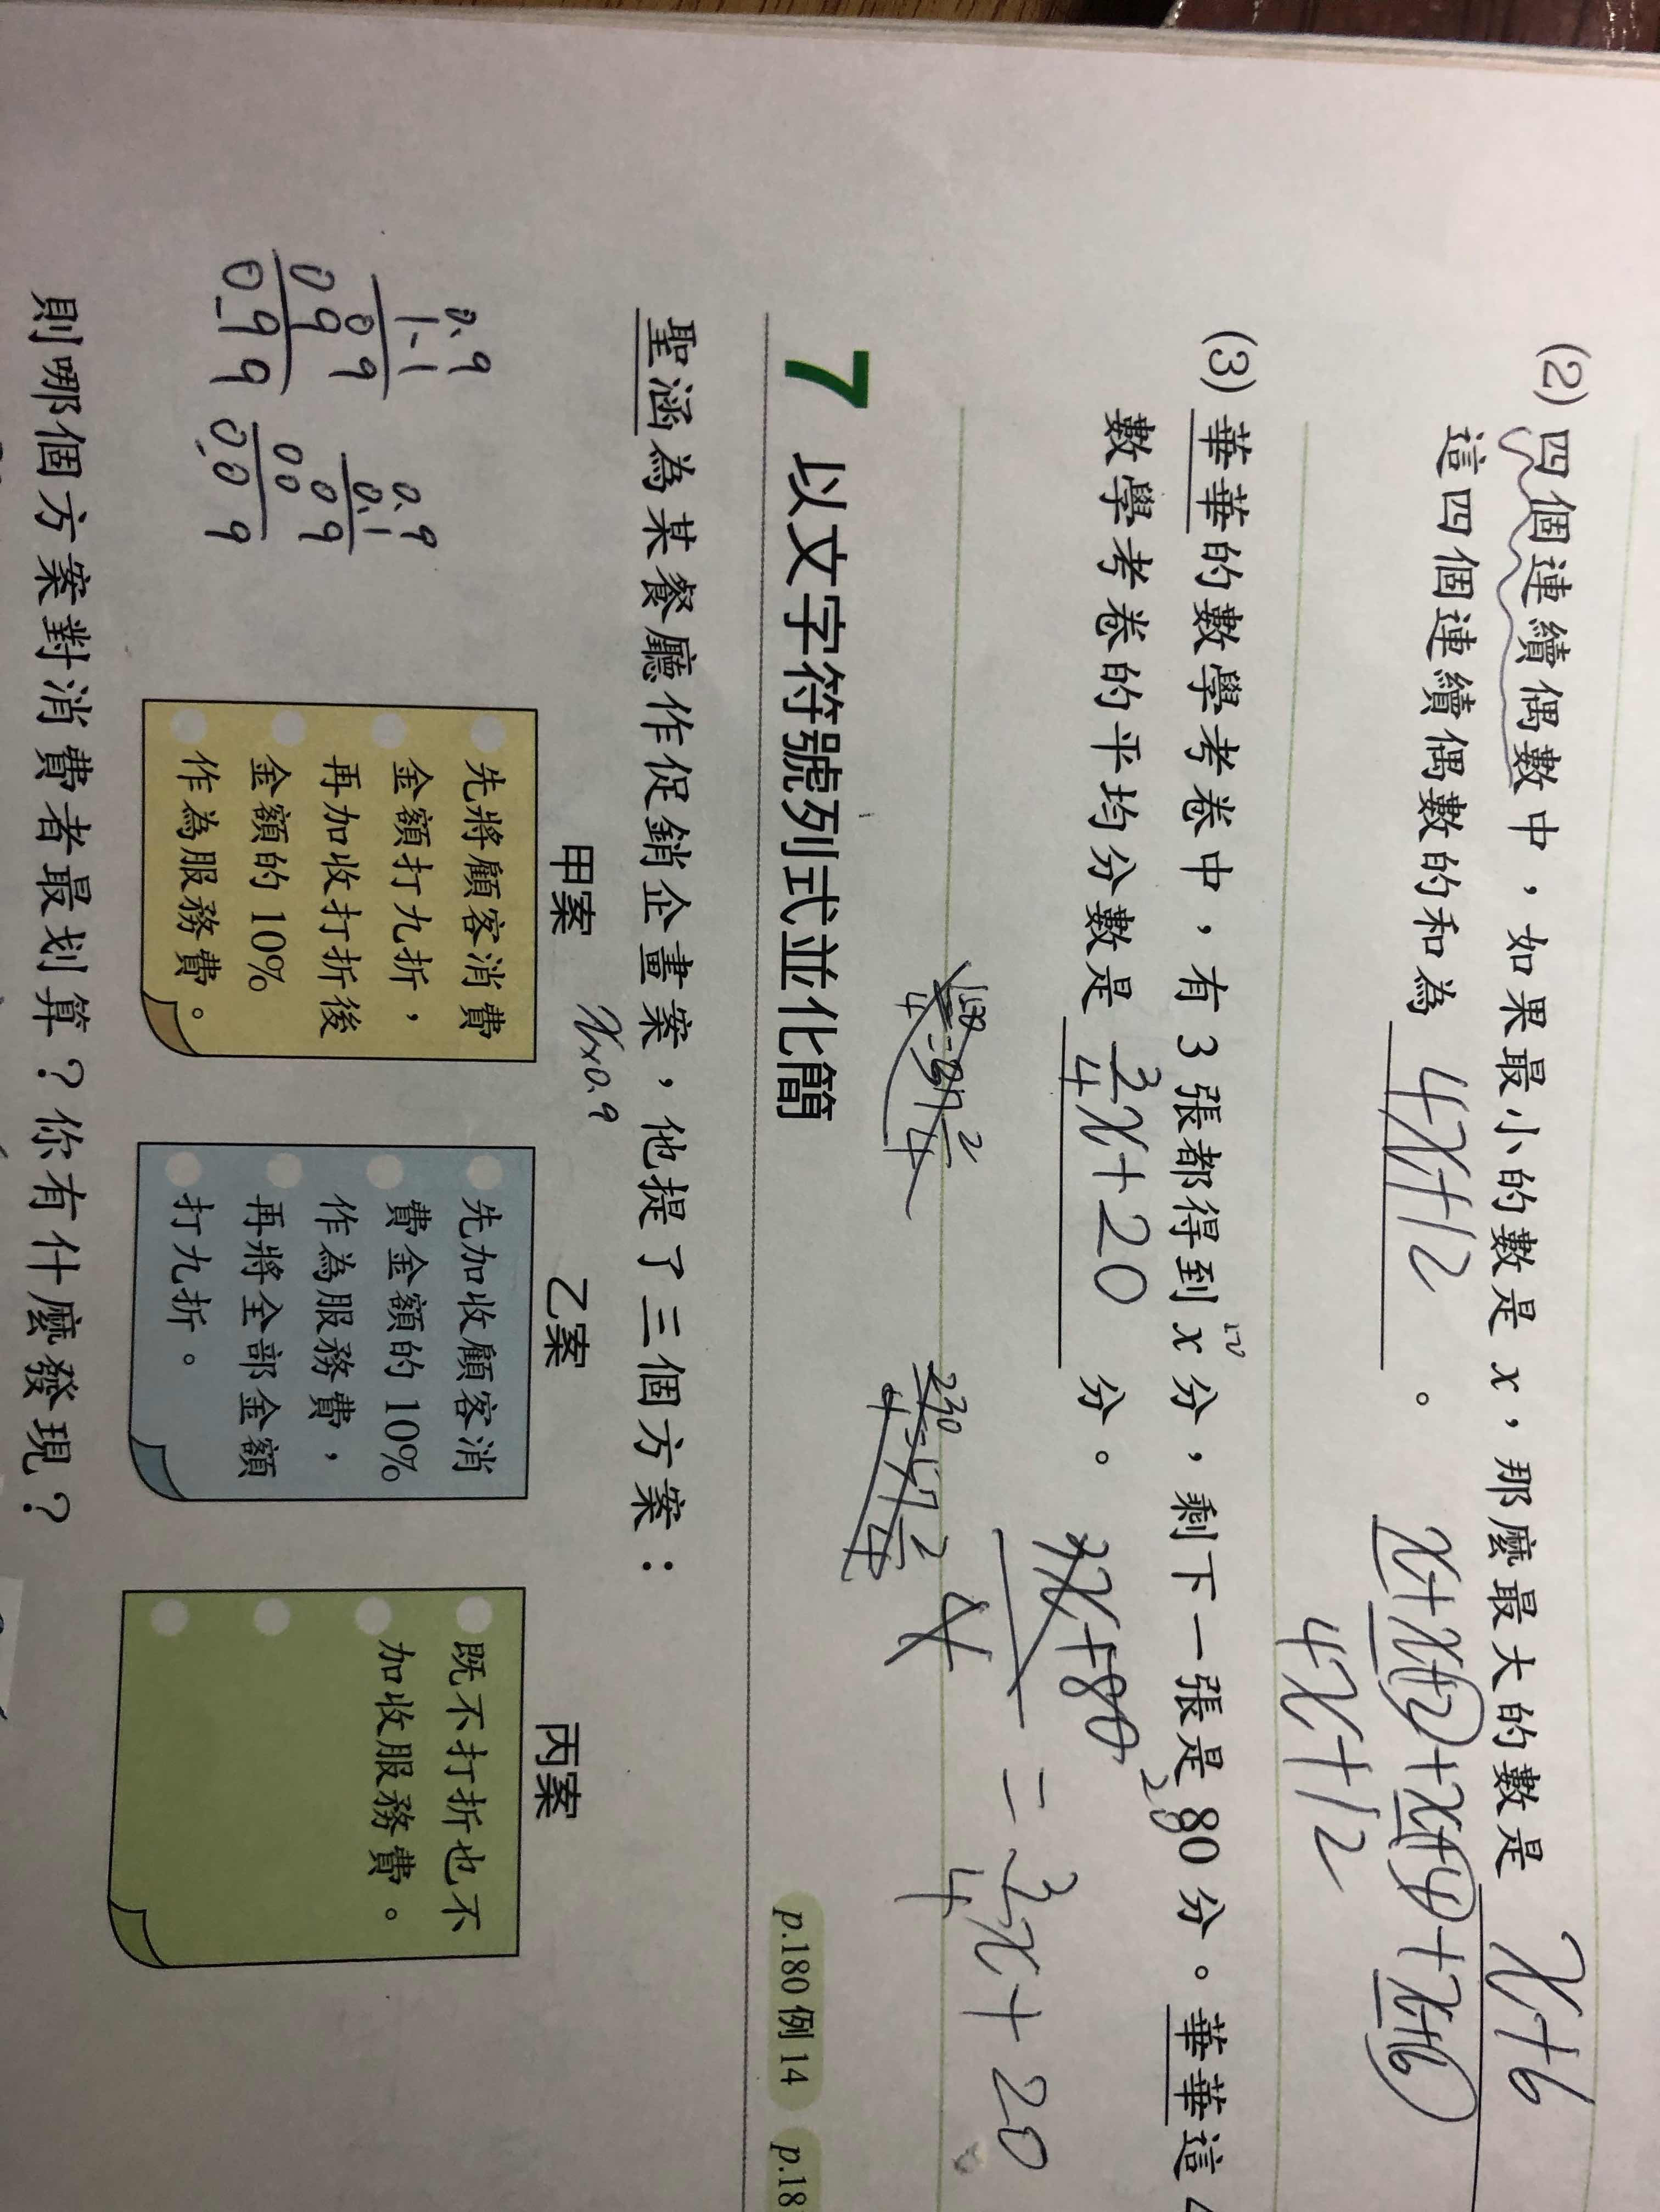 (2) 四個連續偶數中，如果最小的數是 x，那麼最大的數是 x+6
這四個連續偶數的和為 4x+12 。
x+x+2+x+4+x+6
4x+12
(3) 華華的數學考卷中，有 3 張都得到 x 分，剩下一張是 80 分。華華這
數學考卷的平均分數是 3/4 x+20 分。
3x+80
4
= 3/4 x+20
7 以文字符號列式並化簡
p.180 例 14
p.18
聖涵為某餐廳作促銷企畫案，他提了三個方案：
甲案
x×0.9
先將顧客消費
金額打九折，
再加收打折後
金額的 10%
作為服務費。
乙案
先加收顧客消
費金額的 10%
作為服務費，
再將全部金額
打九折。
丙案
既不打折也不
加收服務費。
0.9
1.1
0 9
0 9
0.9 9
0.9
0.1
0 9
0 0
0.0 9
則哪個方案對消費者最划算？你有什麼發現？